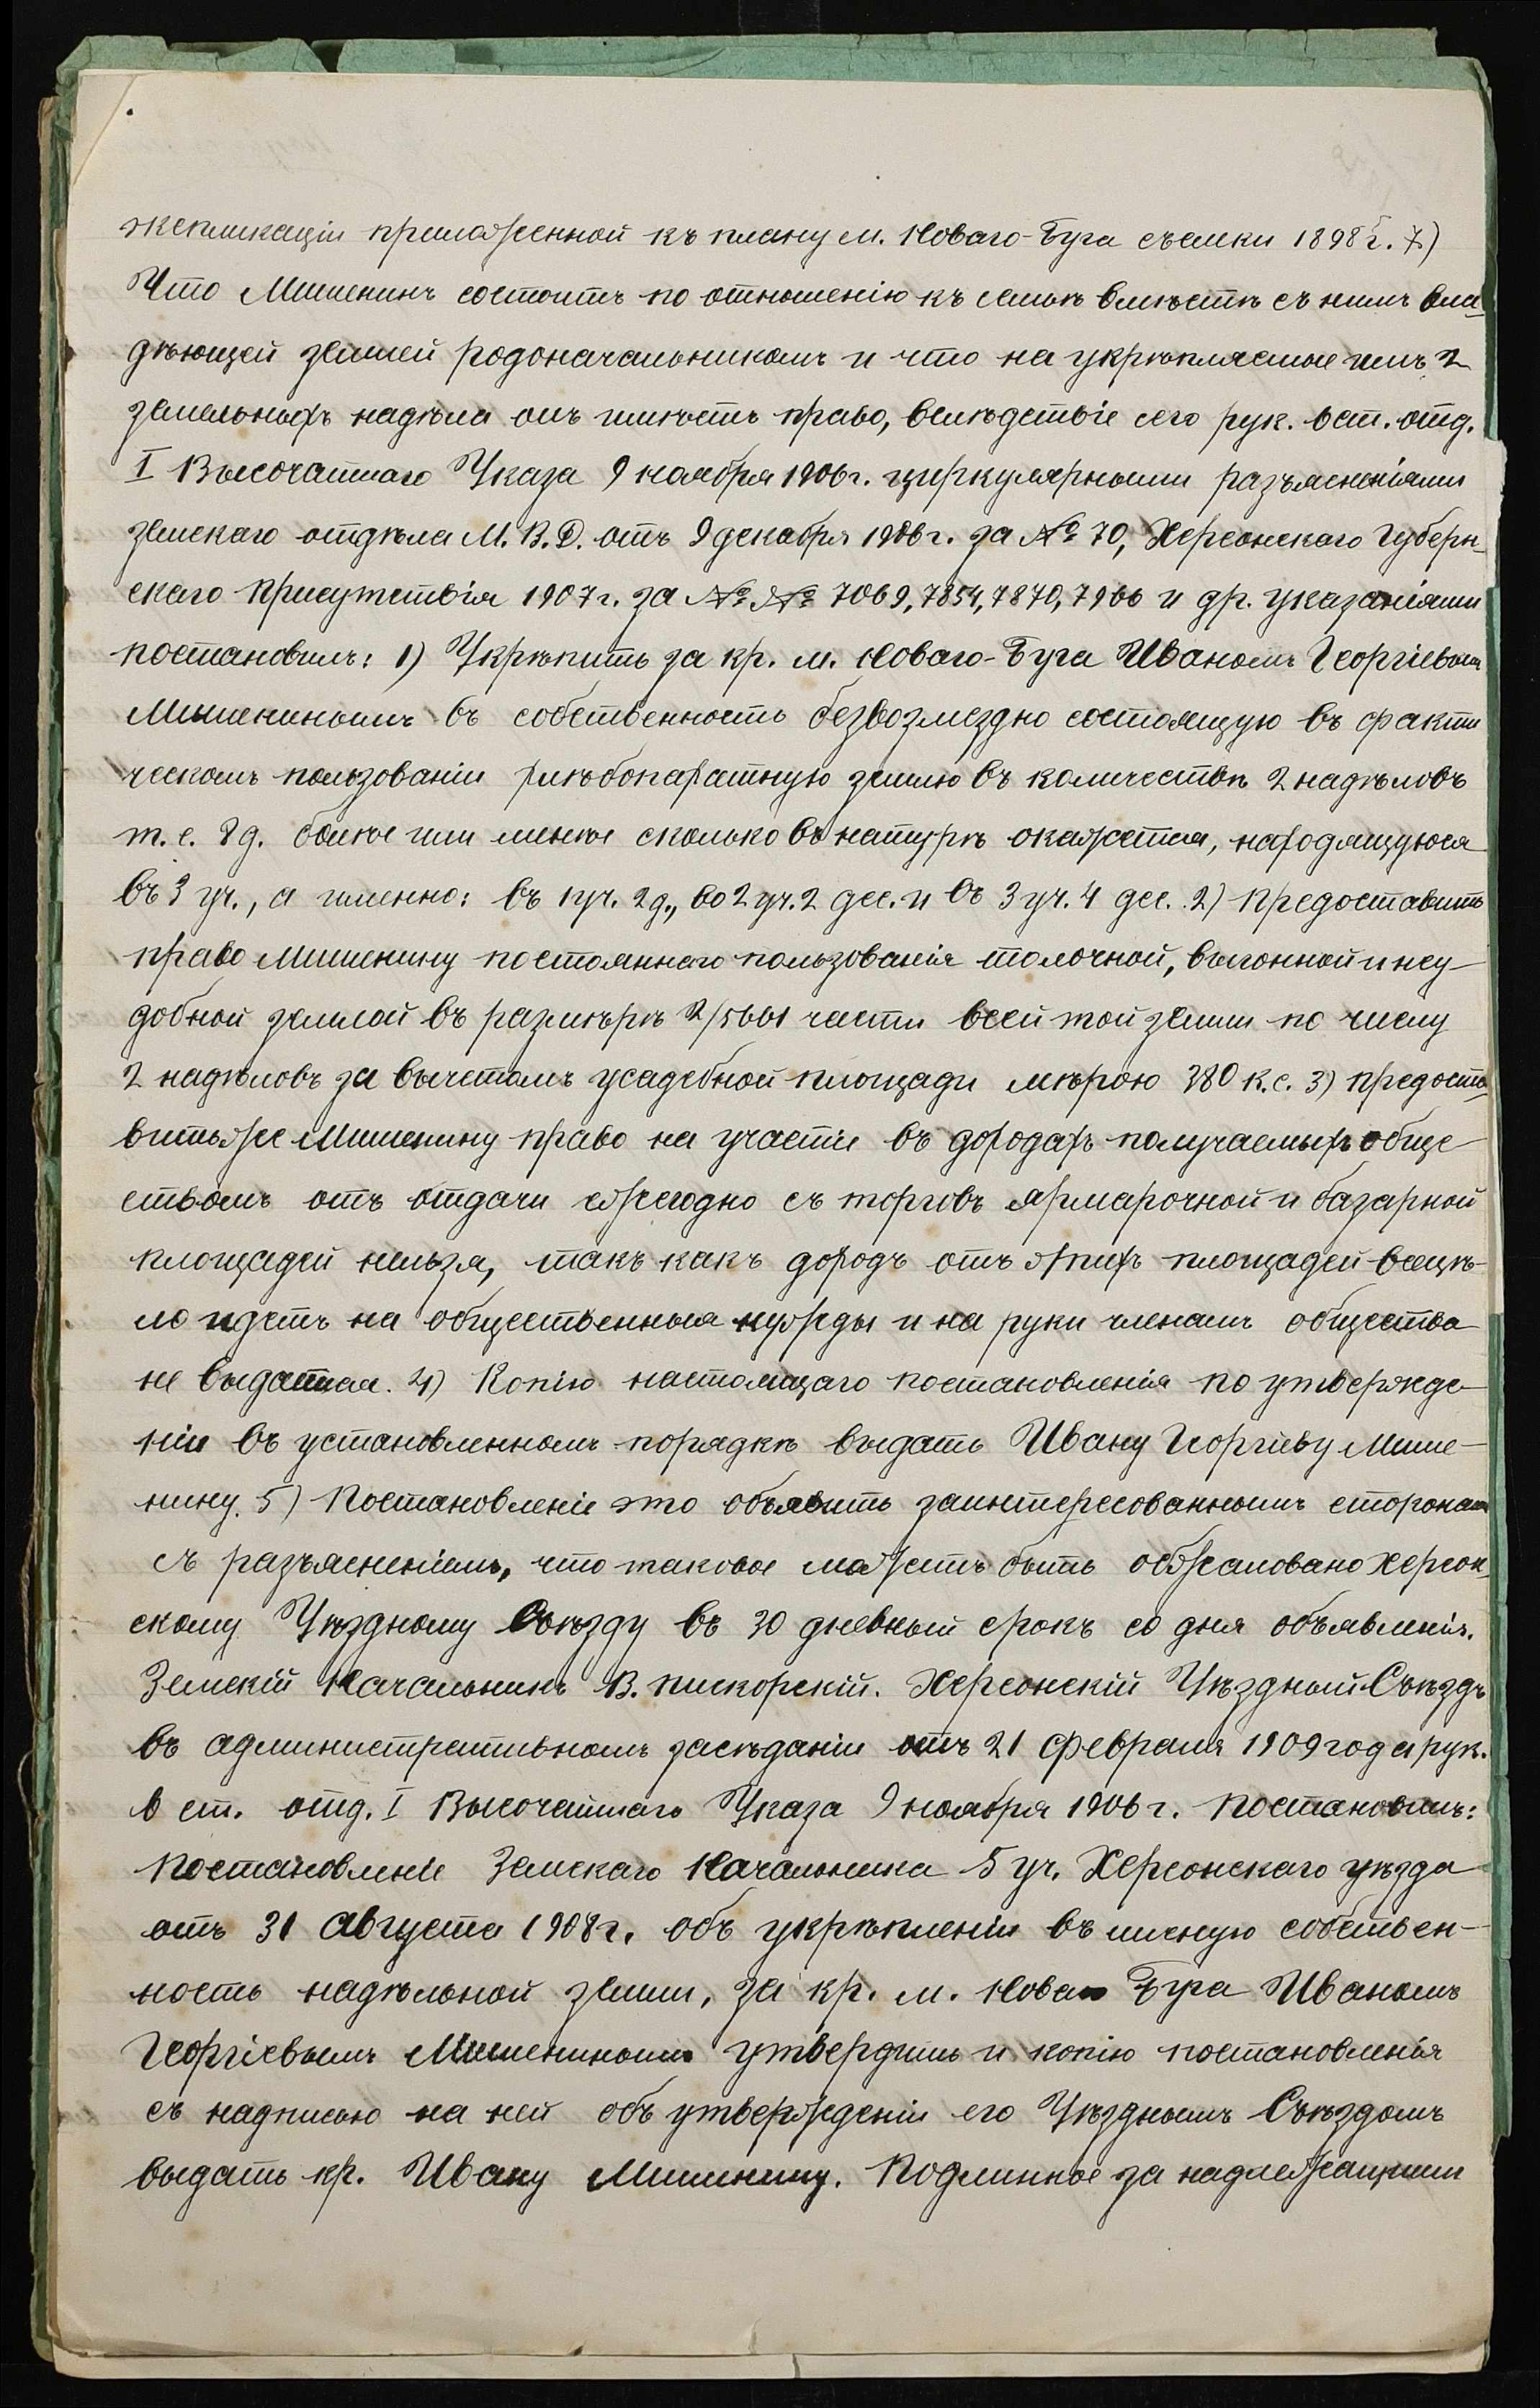 экспликаціи приложенной къ плану м. Новаго-Буга съемки 1898 г. 7)
Что Мишенинъ состоитъ по отношенію къ семьѣ вмѣстѣ съ нимъ вла-
дѣющей землей родоначальникомъ и что на укрѣпляемые имъ 2
земельныхъ надѣла онъ имѣетъ право, вслѣдствіе сего рук. 6 ст. отд.
I Высочайшаго Указа 9 ноября 1906 г. циркулярными разъясненіями
земскаго отдѣла М. В. Д. отъ 9 декабря 1906 г. за № 70, Херсонскаго Губерн-
скаго Присутствія 1907 г. за №№ 7069, 7854, 7870, 7966 и др. указаніями
постановилъ: 1) Укрѣпить за кр. м. Новаго-Буга Иваномъ Георгіевымъ
Мишенинымъ въ собственность безвозмездно состоящую въ факти
ческомъ пользованіи хлѣбопахатную землю въ количествѣ 2 надѣловъ
т. е. 8 д. болѣе или менѣе сколько въ натурѣ окажется, находящуюся
въ 3 уч., а именно: въ 1 уч. 2 д., во 2 уч. 2 дес. и въ 3 уч. 4 дес. 2) Предоставить
право Мишенину постояннаго пользованія толочной, выгонной и неу-
добной землей въ размѣрѣ 2/5661 части всей той земли по числу
2 надѣловъ за вычетомъ усадебной площади мѣрою 380 к. с. 3) Предоста-
вить же Мишенину право на участіе въ доходахъ получаемыхъ обще-
ствомъ отъ отдачи ежегодно съ торговъ ярмарочной и базарной
площадей нельзя, такъ какъ доходъ отъ этихъ площадей всецѣ-
ло идетъ на общественныя нужды и на руки членамъ общества
не выдается. 4) Копію настоящаго постановленія по утвержде-
ніи въ установленномъ порядкѣ выдать Ивану Георгіеву Мише-
нину. 5) Постановленіе это объявить заинтересованнымъ сторонамъ
съ разъясненіемъ, что таковое можетъ быть обжаловано Херсон-
скому Уѣздному Съѣзду въ 30 дневный срокъ со дня объявленія.
Земскій Начальникъ В. Пискорскій. Херсонскій Уѣздный Съѣздъ
въ административномъ засѣданіи отъ 21 февраля 1909 года рук.
6 ст. отд. I Высочайшаго Указа 9 ноября 1906 г. постановилъ:
постановленіе Земскаго Начальника 5 уч. Херсонскаго уѣзда
отъ 31 августа 1908 г. объ укрѣпленіи въ личную собствен-
ность надѣльной земли, за кр. м. Новаго Буга Иваномъ
Георгіевымъ Мишенинымъ утвердить и копію постановленія
съ надписью на ней объ утвержденіи его Уѣзднымъ Съѣздомъ
выдать кр. Ивану Мишенину. Подлинное за надлежащими